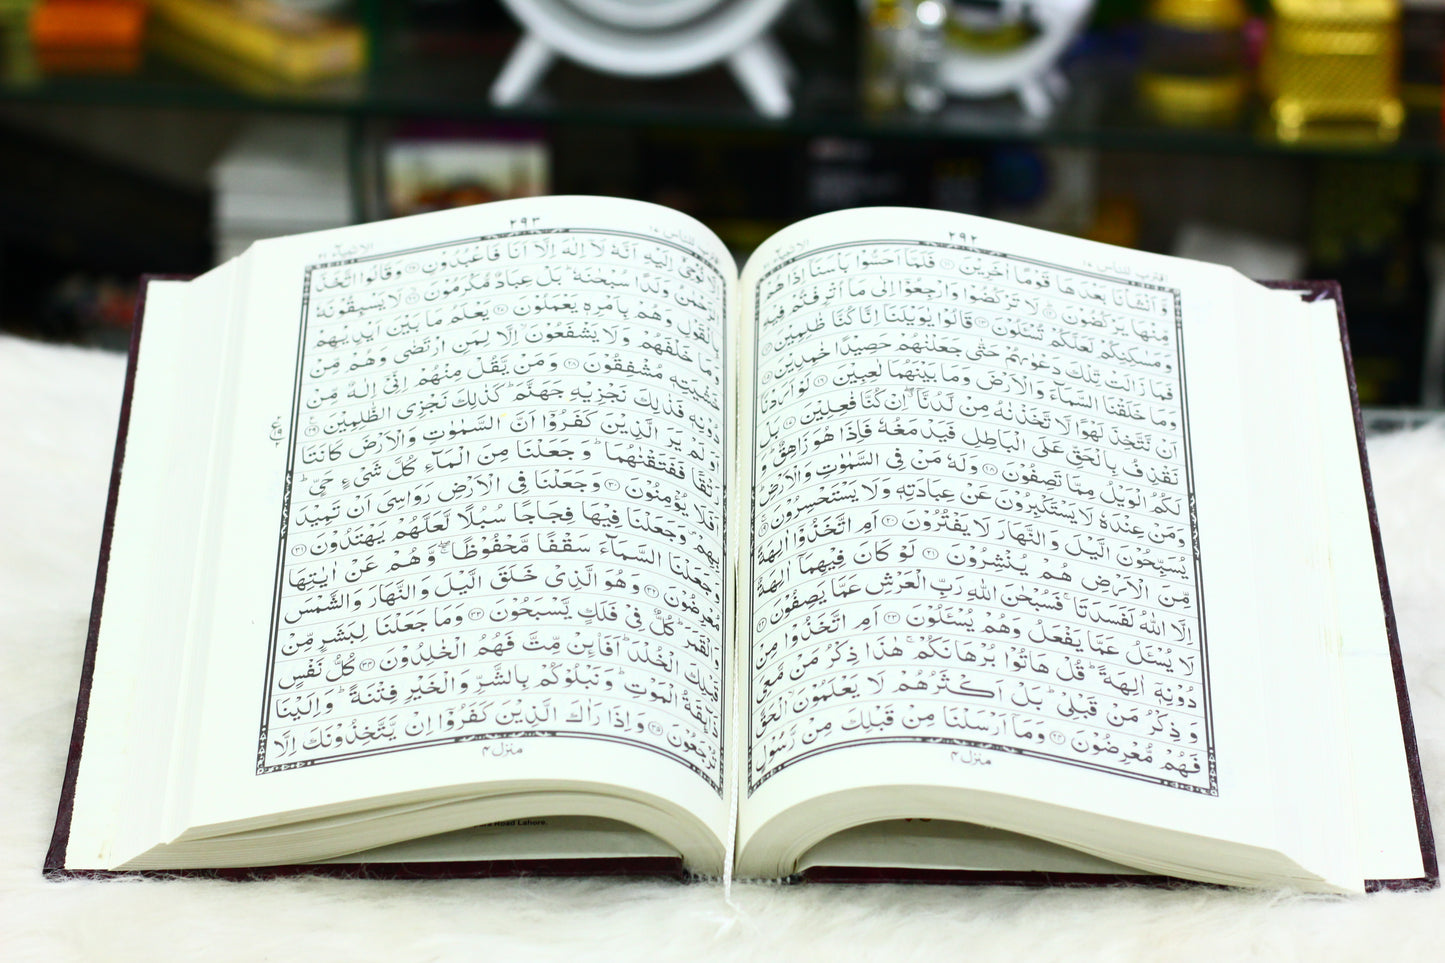 اقترب للناس ١٧
٢٩٢
الانبيآء ٢١
وَّاَنْشَاْنَا بَعْدَهَا قَوْمًا اٰخَرِيْنَ ﴿١١﴾ فَلَمَّاۤ اَحَسُّوْا بَاْسَنَاۤ اِذَا هُمْ
مِّنْهَا يَرْكُضُوْنَ ﴿١٢﴾ لَا تَرْكُضُوْا وَارْجِعُوْۤا اِلٰى مَاۤ اُتْرِفْتُمْ فِيْهِ
وَمَسٰكِنِكُمْ لَعَلَّكُمْ تُسْـَٔلُوْنَ ﴿١٣﴾ قَالُوْا يٰوَيْلَنَاۤ اِنَّا كُنَّا ظٰلِمِيْنَ ﴿١٤﴾
فَمَا زَالَتْ تِّلْكَ دَعْوٰىهُمْ حَتّٰى جَعَلْنٰهُمْ حَصِيْدًا خٰمِدِيْنَ ﴿١٥﴾
وَمَا خَلَقْنَا السَّمَآءَ وَالْاَرْضَ وَمَا بَيْنَهُمَا لٰعِبِيْنَ ﴿١٦﴾ لَوْ اَرَدْنَاۤ
اَنْ نَّتَّخِذَ لَهْوًا لَّاتَّخَذْنٰهُ مِنْ لَّدُنَّاۤ ۖ اِنْ كُنَّا فٰعِلِيْنَ ﴿١٧﴾ بَلْ
نَقْذِفُ بِالْحَقِّ عَلَى الْبَاطِلِ فَيَدْمَغُهٗ فَاِذَا هُوَ زَاهِقٌ ؕ وَ
لَكُمُ الْوَيْلُ مِمَّا تَصِفُوْنَ ﴿١٨﴾ وَلَهٗ مَنْ فِى السَّمٰوٰتِ وَالْاَرْضِ ؕ
وَمَنْ عِنْدَهٗ لَا يَسْتَكْبِرُوْنَ عَنْ عِبَادَتِهٖ وَلَا يَسْتَحْسِرُوْنَ ﴿١٩﴾
يُسَبِّحُوْنَ الَّيْلَ وَالنَّهَارَ لَا يَفْتُرُوْنَ ﴿٢٠﴾ اَمِ اتَّخَذُوْۤا اٰلِهَةً
مِّنَ الْاَرْضِ هُمْ يُنْشِرُوْنَ ﴿٢١﴾ لَوْ كَانَ فِيْهِمَاۤ اٰلِهَةٌ
اِلَّا اللّٰهُ لَفَسَدَتَا ۚ فَسُبْحٰنَ اللّٰهِ رَبِّ الْعَرْشِ عَمَّا يَصِفُوْنَ ﴿٢٢﴾
لَا يُسْـَٔلُ عَمَّا يَفْعَلُ وَهُمْ يُسْـَٔلُوْنَ ﴿٢٣﴾ اَمِ اتَّخَذُوْا مِنْ
دُوْنِهٖۤ اٰلِهَةً ؕ قُلْ هَاتُوْا بُرْهَانَكُمْ ۚ هٰذَا ذِكْرُ مَنْ مَّعِىَ
وَذِكْرُ مَنْ قَبْلِىْ ؕ بَلْ اَكْثَرُهُمْ لَا يَعْلَمُوْنَ ۙ الْحَقَّ
فَهُمْ مُّعْرِضُوْنَ ﴿٢٤﴾ وَمَاۤ اَرْسَلْنَا مِنْ قَبْلِكَ مِنْ رَّسُوْلٍ
منزل ٤
اقترب للناس ١٧
٢٩٣
الانبيآء ٢١
اِلَّا نُوْحِىْۤ اِلَيْهِ اَنَّهٗ لَاۤ اِلٰهَ اِلَّاۤ اَنَا فَاعْبُدُوْنِ ﴿٢٥﴾ وَقَالُوا اتَّخَذَ
الرَّحْمٰنُ وَلَدًا سُبْحٰنَهٗ ؕ بَلْ عِبَادٌ مُّكْرَمُوْنَ ﴿٢٦﴾ لَا يَسْبِقُوْنَهٗ
بِالْقَوْلِ وَهُمْ بِاَمْرِهٖ يَعْمَلُوْنَ ﴿٢٧﴾ يَعْلَمُ مَا بَيْنَ اَيْدِيْهِمْ
وَمَا خَلْفَهُمْ وَلَا يَشْفَعُوْنَ ۙ اِلَّا لِمَنِ ارْتَضٰى وَهُمْ مِّنْ
خَشْيَتِهٖ مُشْفِقُوْنَ ﴿٢٨﴾ وَمَنْ يَّقُلْ مِنْهُمْ اِنِّىْۤ اِلٰهٌ مِّنْ
دُوْنِهٖ فَذٰلِكَ نَجْزِيْهِ جَهَنَّمَ ؕ كَذٰلِكَ نَجْزِى الظّٰلِمِيْنَ ﴿٢٩﴾
اَوَلَمْ يَرَ الَّذِيْنَ كَفَرُوْۤا اَنَّ السَّمٰوٰتِ وَالْاَرْضَ كَانَتَا
رَتْقًا فَفَتَقْنٰهُمَا ؕ وَجَعَلْنَا مِنَ الْمَآءِ كُلَّ شَىْءٍ حَىٍّ ؕ
اَفَلَا يُؤْمِنُوْنَ ﴿٣٠﴾ وَجَعَلْنَا فِى الْاَرْضِ رَوَاسِىَ اَنْ تَمِيْدَ
بِهِمْ وَجَعَلْنَا فِيْهَا فِجَاجًا سُبُلًا لَّعَلَّهُمْ يَهْتَدُوْنَ ﴿٣١﴾
وَجَعَلْنَا السَّمَآءَ سَقْفًا مَّحْفُوْظًا ۖ وَّهُمْ عَنْ اٰيٰتِهَا
مُعْرِضُوْنَ ﴿٣٢﴾ وَهُوَ الَّذِىْ خَلَقَ الَّيْلَ وَالنَّهَارَ وَالشَّمْسَ
وَالْقَمَرَ ؕ كُلٌّ فِىْ فَلَكٍ يَّسْبَحُوْنَ ﴿٣٣﴾ وَمَا جَعَلْنَا لِبَشَرٍ مِّنْ
قَبْلِكَ الْخُلْدَ ؕ اَفَا۟ئِنْ مِّتَّ فَهُمُ الْخٰلِدُوْنَ ﴿٣٤﴾ كُلُّ نَفْسٍ
ذَآئِقَةُ الْمَوْتِ ؕ وَنَبْلُوْكُمْ بِالشَّرِّ وَالْخَيْرِ فِتْنَةً ؕ وَاِلَيْنَا
تُرْجَعُوْنَ ﴿٣٥﴾ وَاِذَا رَاٰكَ الَّذِيْنَ كَفَرُوْۤا اِنْ يَّتَّخِذُوْنَكَ اِلَّا
منزل ٤
Road Lahore.